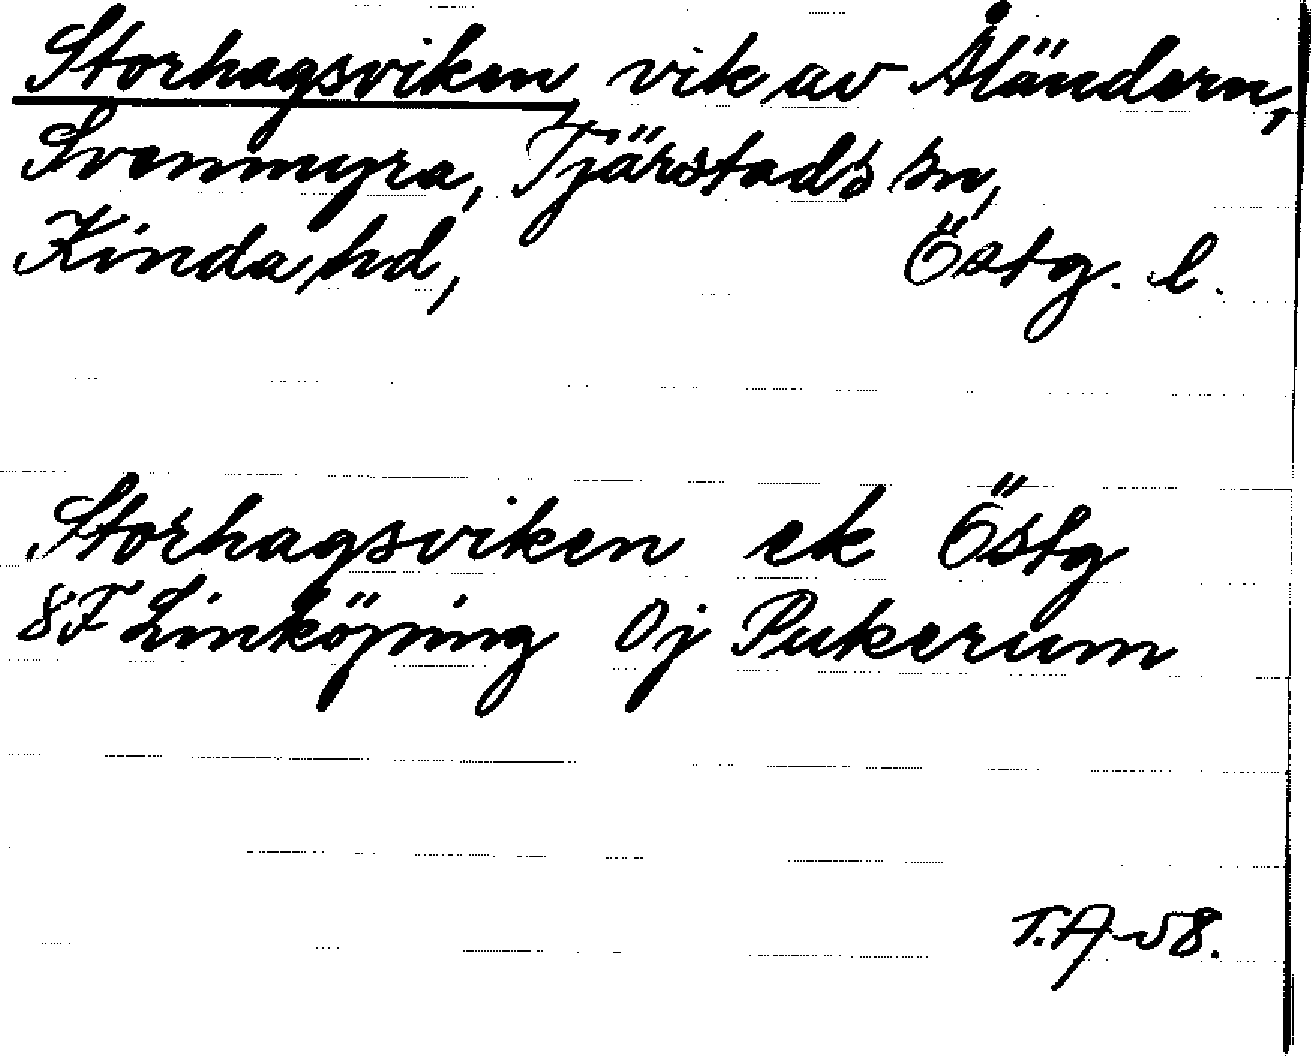 Storhagsviken, vik av Åländern,
Svenmyra, Tjärstads sn,
Kinda hd, Östg. l.
Storhagsviken ek Östg
8F Linköping 0j Pukerum
T.A-58.